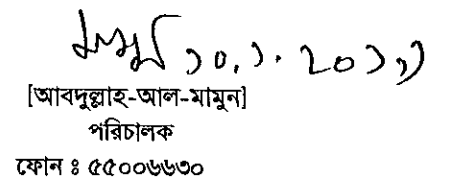 ১০.১.২০১১
[আবদুল্লাহ-আল-মামুন]
পরিচালক
ফোন ঃ ৫৫০০৬৬৩০